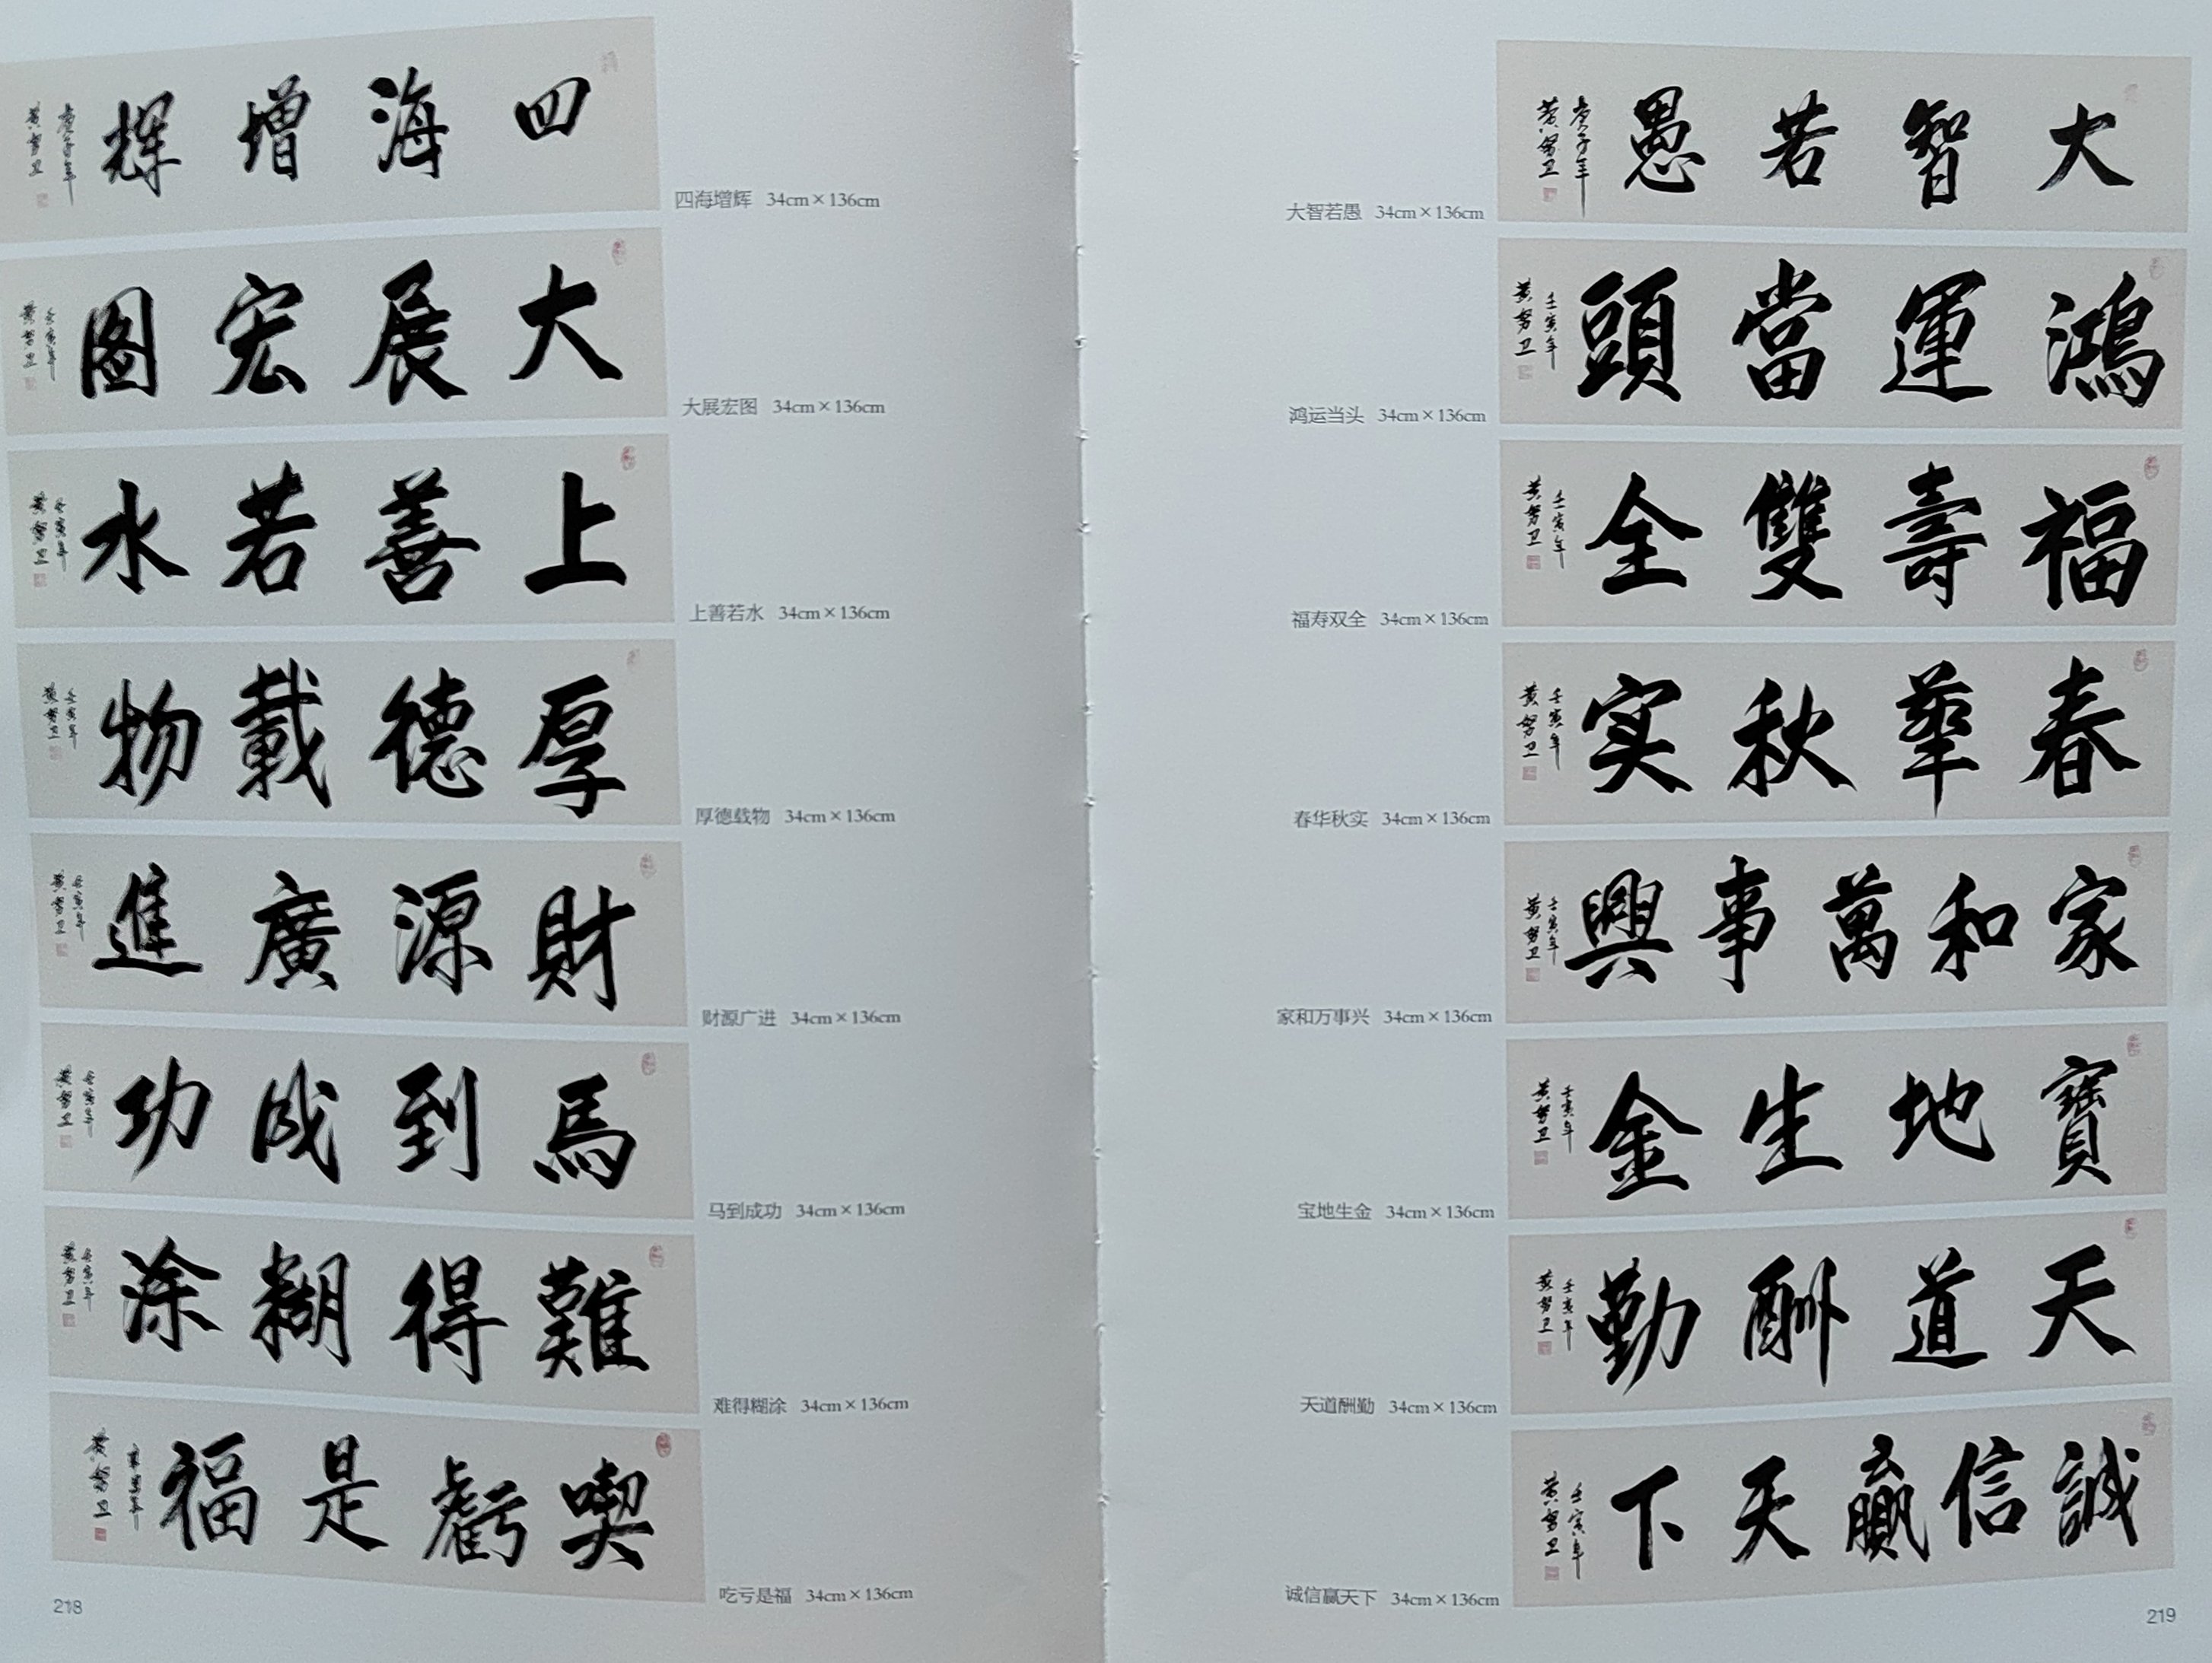 四海增辉
庚子年
黄努卫
四海增辉 34cm×136cm
大展宏图
壬寅年
黄努卫
大展宏图 34cm×136cm
上善若水
壬寅年
黄努卫
上善若水 34cm×136cm
厚德載物
壬寅年
黄努卫
厚德载物 34cm×136cm
財源廣進
壬寅年
黄努卫
财源广进 34cm×136cm
馬到成功
壬寅年
黄努卫
马到成功 34cm×136cm
難得糊涂
壬寅年
黄努卫
难得糊涂 34cm×136cm
喫虧是福
黄努卫
吃亏是福 34cm×136cm
218
大智若愚
庚子年
黄努卫
大智若愚 34cm×136cm
鴻運當頭
壬寅年
黄努卫
鸿运当头 34cm×136cm
福壽雙全
壬寅年
黄努卫
福寿双全 34cm×136cm
春華秋实
壬寅年
黄努卫
春华秋实 34cm×136cm
家和萬事興
壬寅年
黄努卫
家和万事兴 34cm×136cm
寶地生金
壬寅年
黄努卫
宝地生金 34cm×136cm
天道酬勤
壬寅年
黄努卫
天道酬勤 34cm×136cm
誠信贏天下
壬寅年
黄努卫
诚信赢天下 34cm×136cm
219